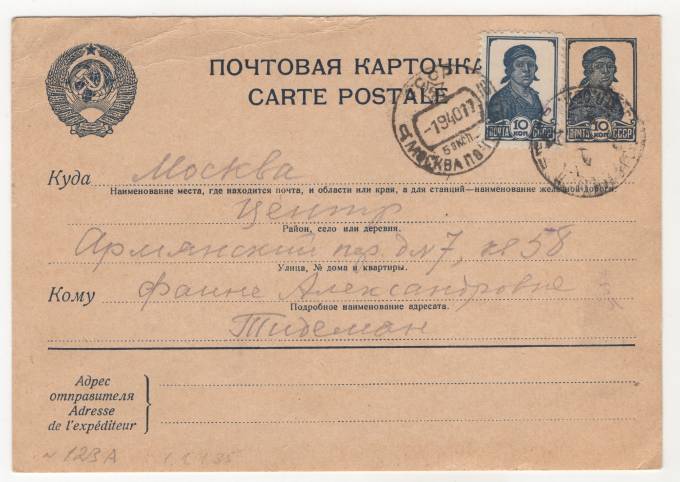 ПОЧТОВАЯ КАРТОЧКА
CARTE POSTALE
-1940 17
5 ЭКСП.
МОСКВА
ПОЧТА 10 КОП. СССР
ПОЧТА 10 КОП. СССР
Куда Москва
Наименование места, где находится почта, и области или края, а для станций—наименование железной дороги.
Центр
Район, село или деревня.
Армянский пер. д № 7, кв 58
Улица, № дома и квартиры.
Кому Фаине Александровне
Подробное наименование адресата.
Тидеман
Адрес
отправителя
Adresse
de l'expéditeur
N 123A